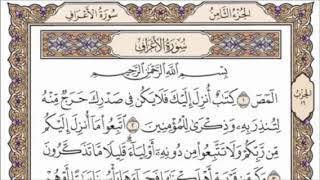 سُورَةُ الأَعْرَافِ
الجُزْءُ الثَّامِنُ
سُورَةُ الأَعْرَافِ
بِسْمِ اللَّهِ الرَّحْمَٰنِ الرَّحِيمِ
الٓمٓصٓ ١ كِتَٰبٌ أُنزِلَ إِلَيْكَ فَلَا يَكُن فِى صَدْرِكَ حَرَجٌ مِّنْهُ
لِتُنذِرَ بِهِۦ وَذِكْرَىٰ لِلْمُؤْمِنِينَ ٢ ٱتَّبِعُوا۟ مَآ أُنزِلَ إِلَيْكُم
مِّن رَّبِّكُمْ وَلَا تَتَّبِعُوا۟ مِن دُونِهِۦٓ أَوْلِيَآءَ قَلِيلًا مَّا تَذَكَّرُونَ